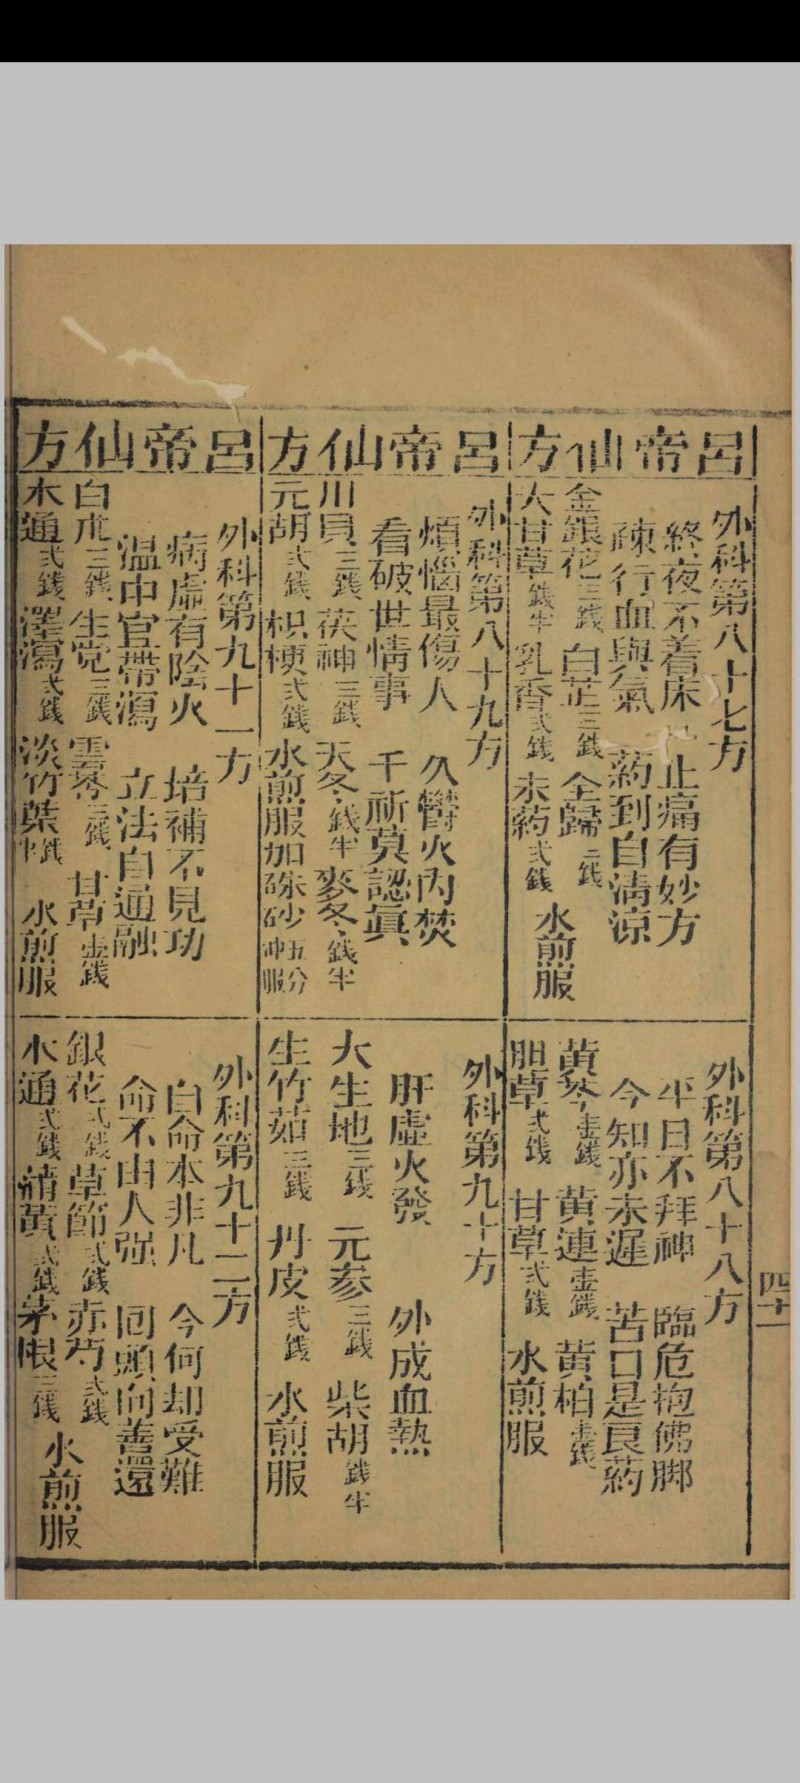 呂帝仙方
外科第八十七方
終夜不着床 止痛有妙方
疎行血與氣 葯到自清涼
金銀花三錢 白芷三錢 全歸二錢
大甘草錢半 乳香弍錢 末葯弍錢 水煎服
外科第八十八方
平日不拜神 臨危抱佛脚
今知亦未遲 苦口是良葯
黃芩壹錢 黃連壹錢 黃柏壹錢
胆草弍錢 甘草弍錢 水煎服
四十一
呂帝仙方
外科第八十九方
煩惱最傷人 久鬱火內焚
看破世情事 千祈莫認眞
川貝三錢 茯神三錢 天冬錢半 麥冬錢半
元胡弍錢 枳梗弍錢 水煎服加硃砂五分冲服
外科第九十方
肝虛火發 外成血熱
大生地三錢 元參三錢 柴胡錢半
生竹茹三錢 丹皮弍錢 水煎服
呂帝仙方
外科第九十一方
病虛有陰火 培補不見功
溫中宜帶瀉 立法自通融
白朮三錢 生党三錢 雲苓三錢 甘草壹錢
木通弍錢 澤瀉弍錢 淡竹葉錢半 水煎服
外科第九十二方
白命本非凡 今何却受難
命不由人强 回頭向善還
銀花弍錢 草節弍錢 赤芍弍錢
木通弍錢 清黃弍錢 茅根三錢 水煎服